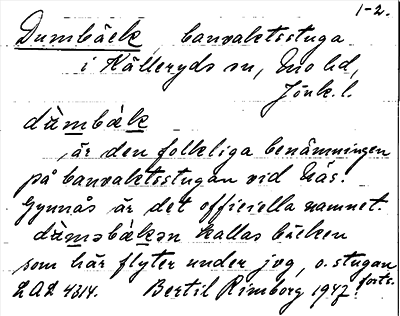 1-2.
Dumbäck, banvaktsstuga
i Källeryds sn, Mo hd,
Jönk. l.
dùmbæk
, är den folkliga benämningen
på banvaktsstugan vid Näs.
Gynnås är det officiella namnet.
dùməbækən kallas bäcken
som här flyter under jvg, o. stugan
forts.
LAL 4314. Bertil Rimborg 1947.